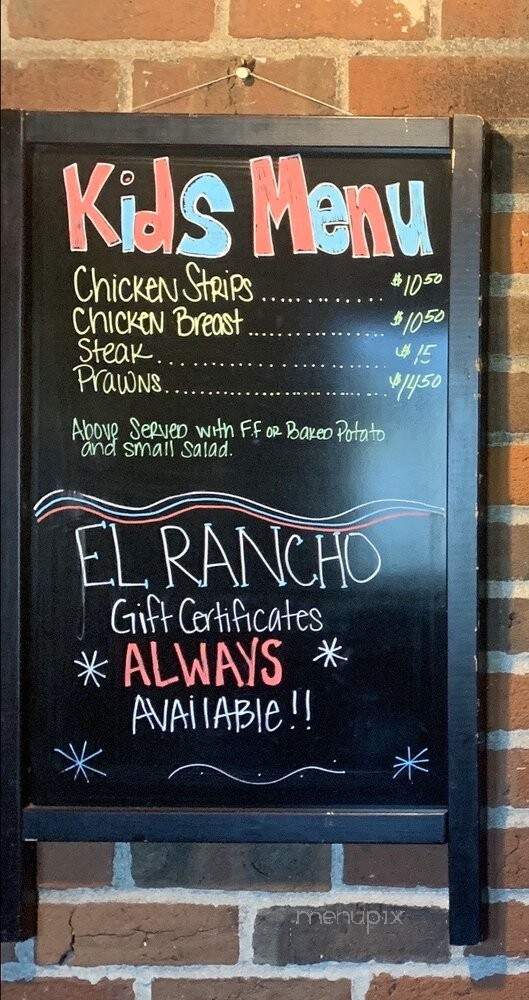 Kids Menu
Chicken Strips ............ $10.50
Chicken Breast ............ $10.50
Steak ............ $15
Prawns ............ $14.50
Above Served with F.F or Baked Potato
and small Salad.
EL RANCHO
Gift Certificates
ALWAYS
AVAILABLE!!
menupix